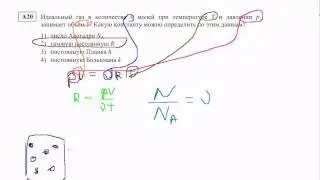 A20 Идеальный газ в количестве молей при температуре и давлении p
занимает объем V. Какую константу можно определить по этим данным?
1) число Авогадро N_A
2) газовую постоянную R
3) постоянную Планка h
4) постоянную Больцмана k
pV = νRT
R = pV/νT
N/N_A = ν